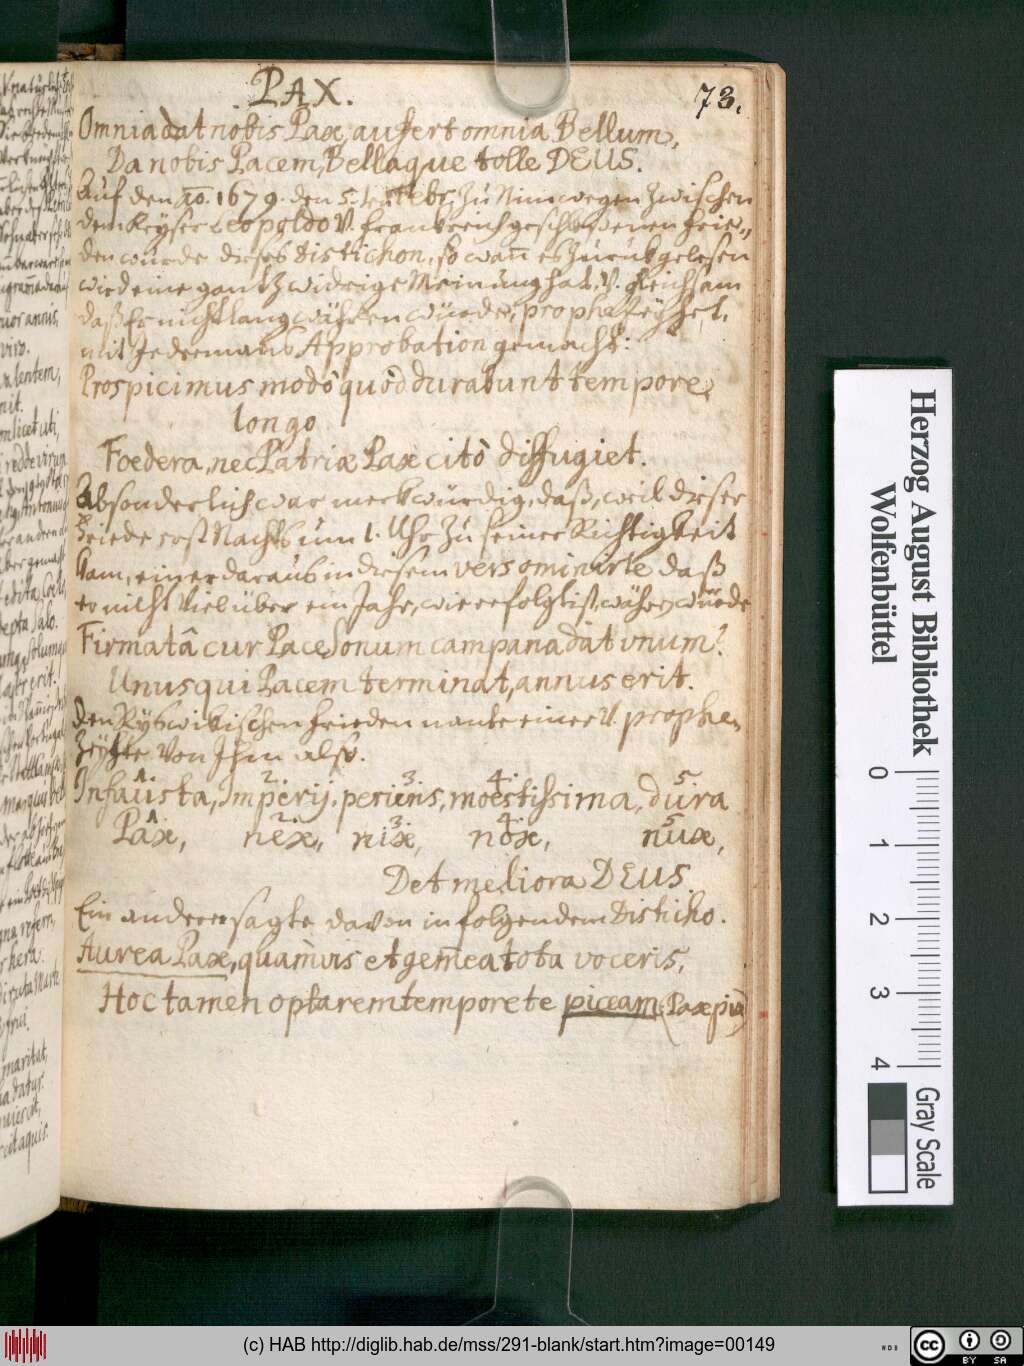 PAX.
73.
Omnia dat nobis Pax, aufert omnia Bellum,
Da nobis Pacem, Bellaque tolle DEUS.
Auf den Ao. 1679. den 5. Zu Nimwegen zwischen
dem Keyser Leopoldo V. Franckreich geschloßenen Frie„
den wurde dieses Distichon, so wañ es Zurück gelesen
wird eine gantz widrige Meinung hat, V. gleichsam
daß Er nicht lang währen würde, propheteyhet,
mit Jedermans Approbation gemacht:
Prospicimus modò quòd durabunt tempore
longo
Foedera, nec Patriæ Pax citò diffugiet.
Absonderlich war merckwürdig, daß, weil dieser
Friede erst Nachts um 1. Uhr Zu seiner Richtigkeit
kam, einer daraus in diesem vers ominirte daß
er nicht viel über ein Jahr, wie erfolgt ist, währen würde
Firmatâ cur Pace sonum campana dat vnum?
Unus qui Pacem terminat, annus erit.
Den Ryswikischen Frieden nante einer V. prophe„
zeyhte Von Ihm also.
1. 2. 3. 4. 5.
Infausta, Imperij, periens, moestissima, dura
1. 2. 3. 4. 5.
Pax, nex, nix, nox, nux,
Det meliora DEUS.
Ein anderer sagte davon in folgendem Disticho.
Aurea Pax, quamvis et gem̄ea tota voceris,
Hoc tamen optarem tempore te piceam (Pax pia)
Vnaturlich
viro.
valentem,
nit.
licet uti,
redde virum
edita,
Salo.
erit.
rkera.
maritat,
datur.
aquis.
Herzog August Bibliothek
Wolfenbüttel
0 1 2 3 4
Gray Scale
(c) HAB http://diglib.hab.de/mss/291-blank/start.htm?image=00149
WDB
cc
BY SA